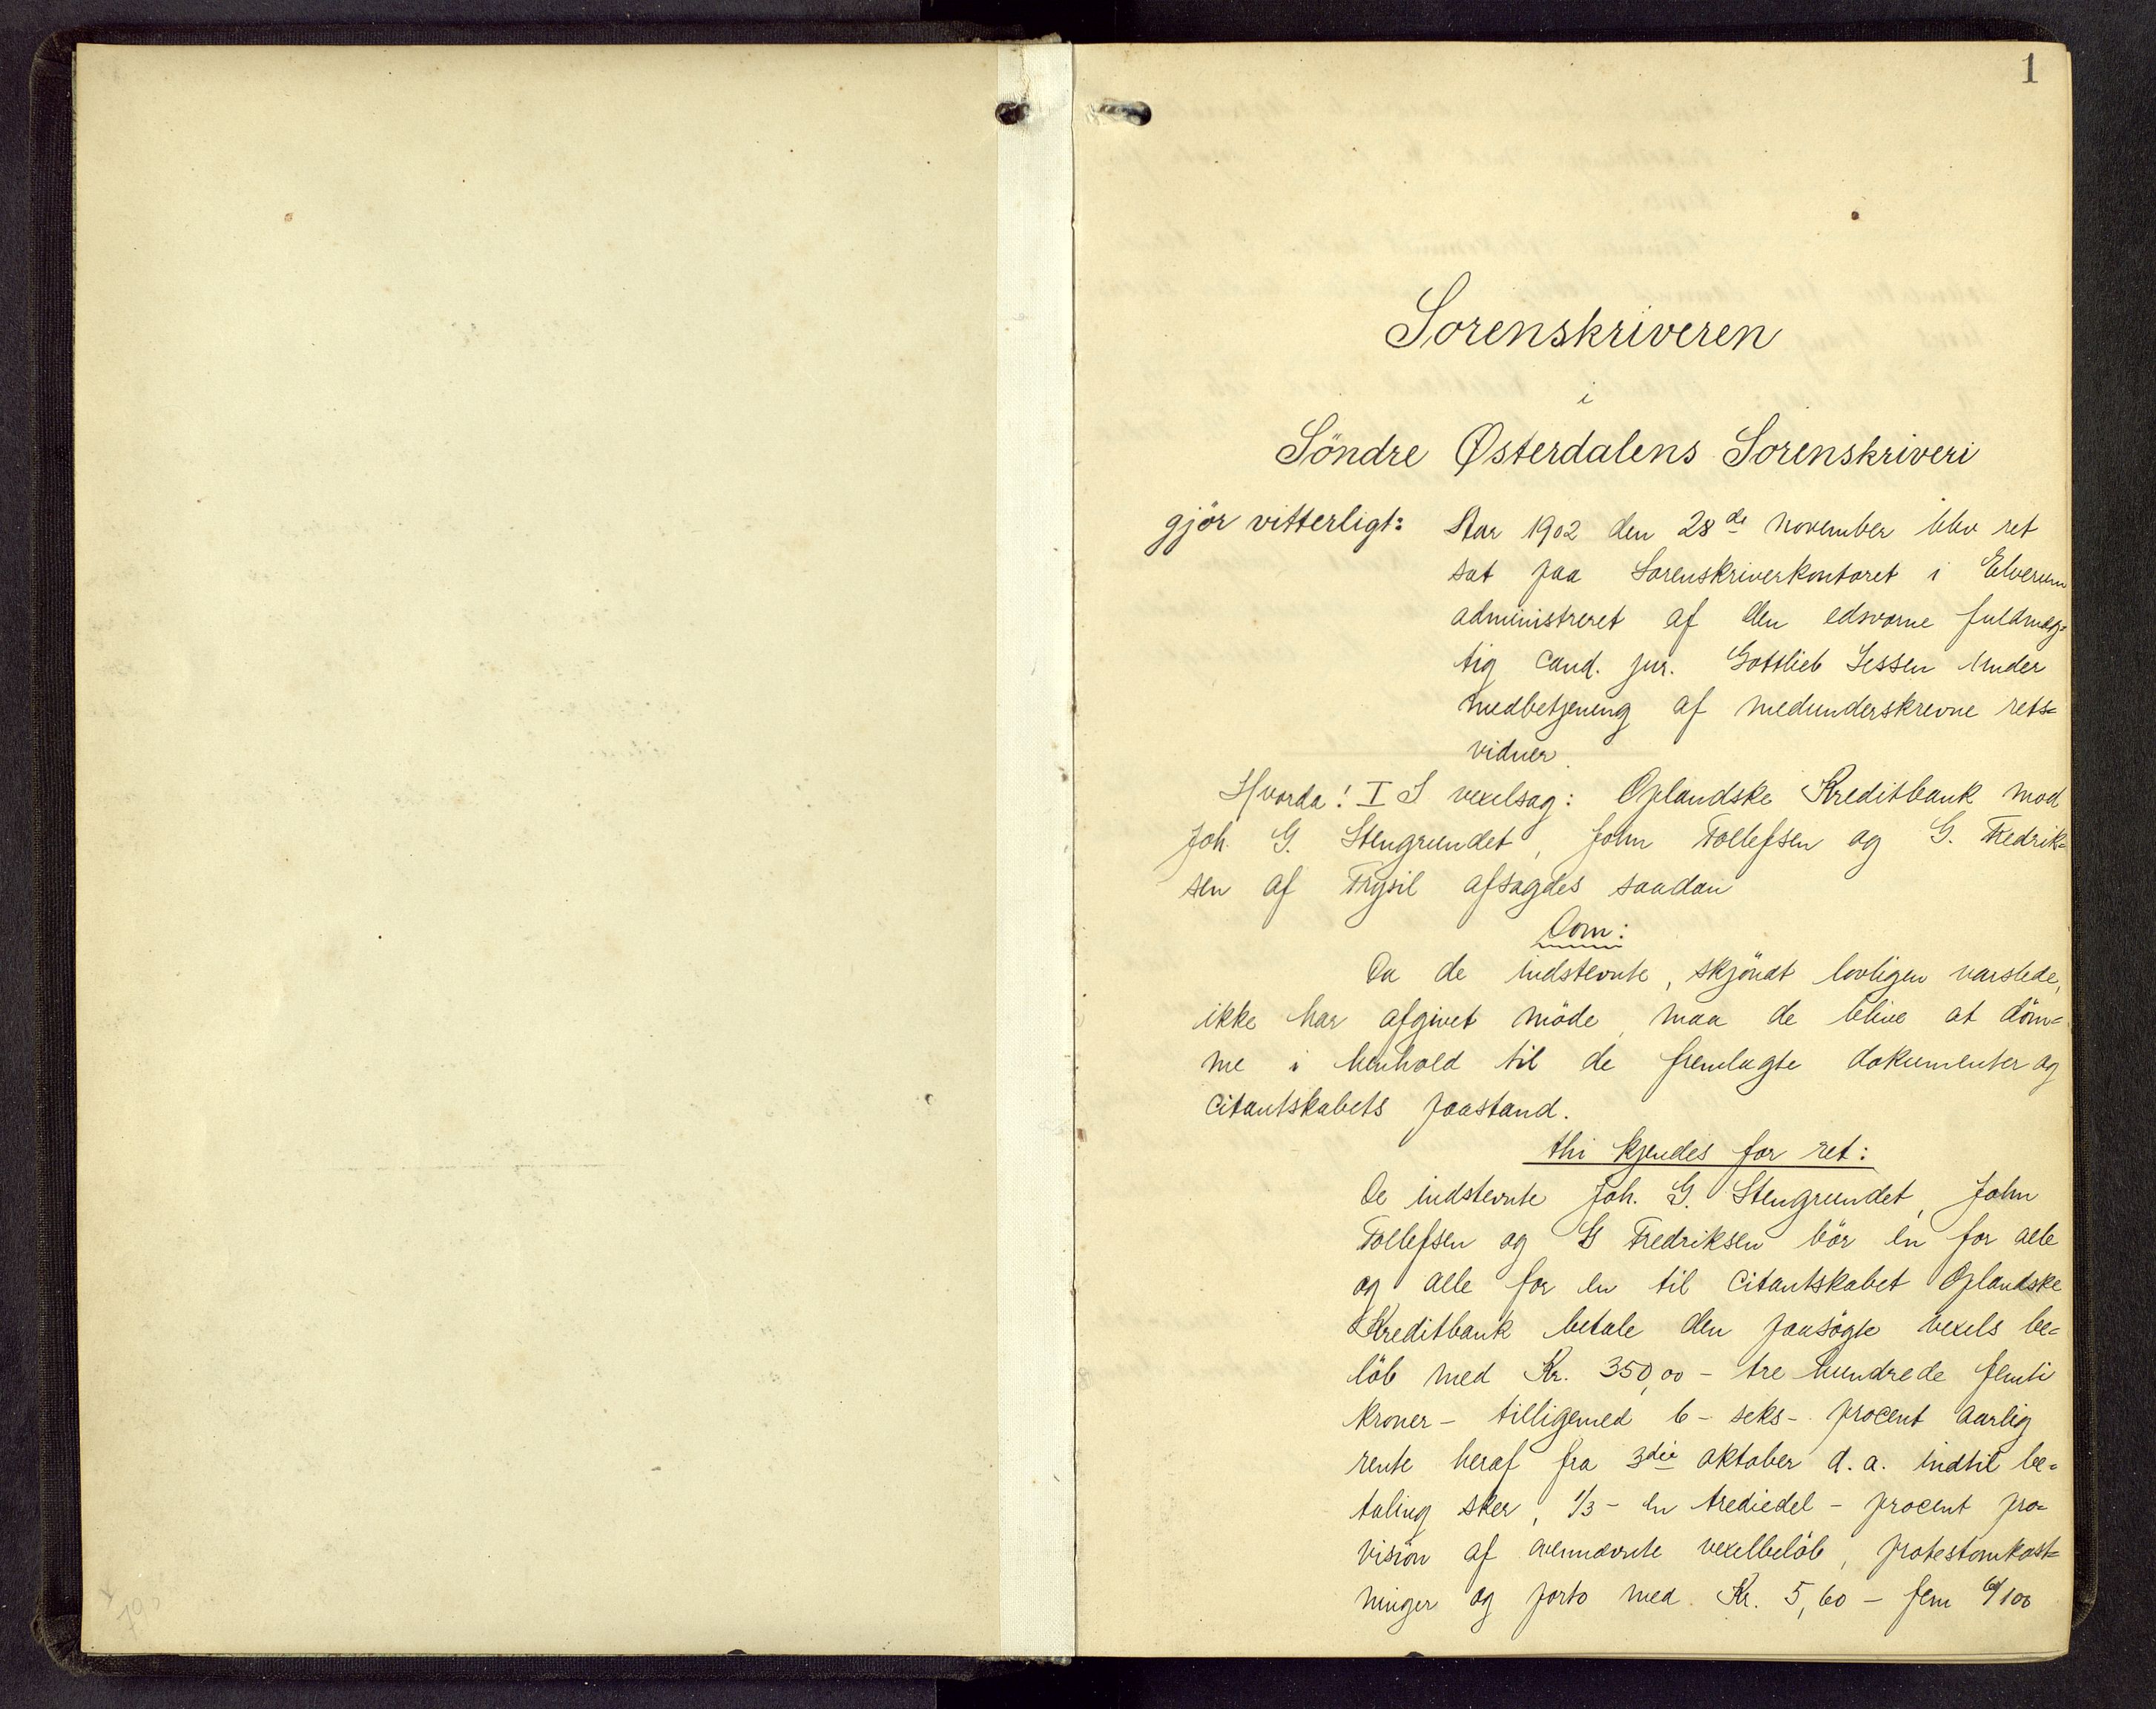 1
Sorenskriveren
i
Söndre Østerdalens Sorenskriveri
gjör vitterligt: Aar 1902 den 28de november blev ret
sat paa Sorenskriverkontoret i Elverum
administreret af den edsvorne fuldmæg=
tig cand. jur. Gottlieb Jessen under
medbetjening af medunderskrevne rets=
vidner.
Hvorda! I I vexelsag: Oplandske Kreditbank mod
Joh. G. Stengrundet, John Tollefsen og G. Fredrik=
sen af Trysil afsagdes saadan
Dom:
Da de indstevnte, skjöndt lovligen varslede,
ikke har afgivet möde, maa de blive at döm=
me i henhold til de fremlagte dokumenter og
citantskabets paastand.
thi kjendes for ret:
De indstevnte Joh. G. Stengrundet, John
Tollefsen og G Fredriksen bör en for alle
og alle for en til citantskabet Oplandske
Kreditbank betale den paasögte vexels be=
löb med Kr. 350,00 - tre hundrede femti
kroner - tilligemed 6 - seks - procent aarlig
rente heraf fra 3die oktober d. a. indtil be=
taling sker, 1/3 - en trediedel - procent pro=
vision af ovennævnte vexelbelöb, protestomkost=
ninger og porto med Kr. 5,60 - fem 60/100